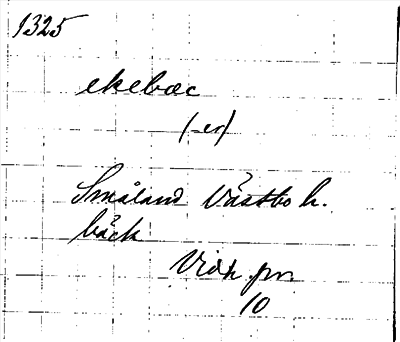 1325
ekebæc
(-er)
Småland Västbo h.
bäck
Vidh. pm.
10